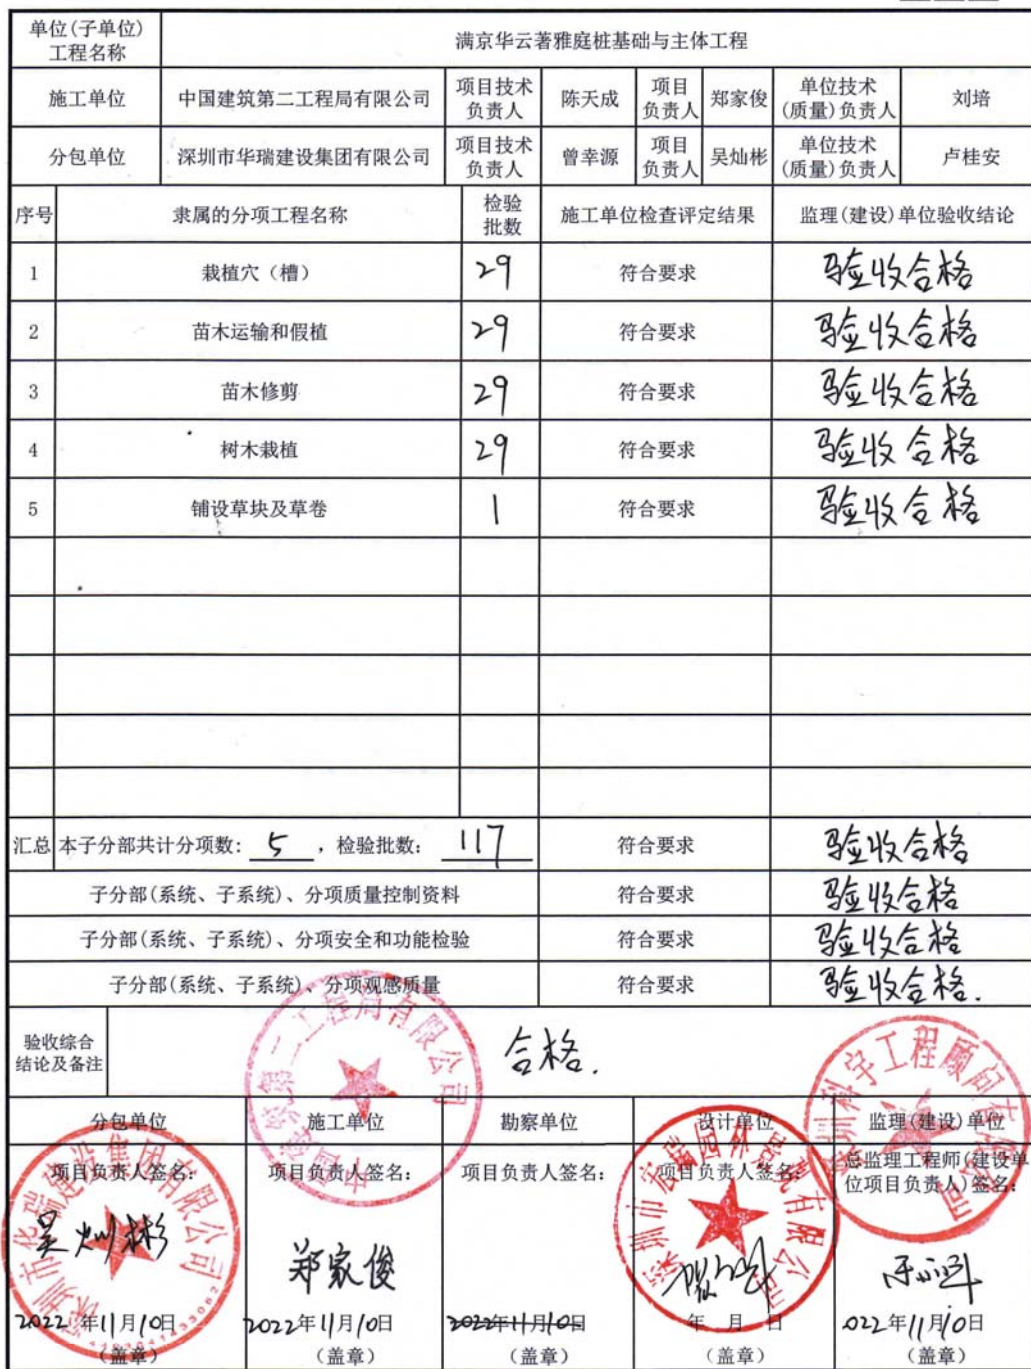 单位(子单位)
工程名称
满京华云著雅庭桩基础与主体工程
施工单位
中国建筑第二工程局有限公司
项目技术
负责人
陈天成
项目
负责人
郑家俊
单位技术
(质量)负责人
刘培
分包单位
深圳市华瑞建设集团有限公司
项目技术
负责人
曾幸源
项目
负责人
吴灿彬
单位技术
(质量)负责人
卢桂安
序号
隶属的分项工程名称
检验
批数
施工单位检查评定结果
监理(建设)单位验收结论
1
栽植穴（槽）
29
符合要求
验收合格
2
苗木运输和假植
29
符合要求
验收合格
3
苗木修剪
29
符合要求
验收合格
4
树木栽植
29
符合要求
验收合格
5
铺设草块及草卷
1
符合要求
验收合格
汇总
本子分部共计分项数: 5 ，检验批数: 117
符合要求
验收合格
子分部(系统、子系统)、分项质量控制资料
符合要求
验收合格
子分部(系统、子系统)、分项安全和功能检验
符合要求
验收合格
子分部(系统、子系统)、分项观感质量
符合要求
验收合格.
验收综合
结论及备注
合格.
分包单位
施工单位
勘察单位
设计单位
监理(建设)单位
项目负责人签名:
项目负责人签名:
项目负责人签名:
项目负责人签名:
总监理工程师(建设单
位项目负责人)签名:
吴灿彬
郑家俊
2022年11月10日
2022年11月10日
2022年11月10日
年 月 日
022年11月10日
(盖章)
(盖章)
(盖章)
(盖章)
(盖章)
深圳市华瑞建设集团有限公司